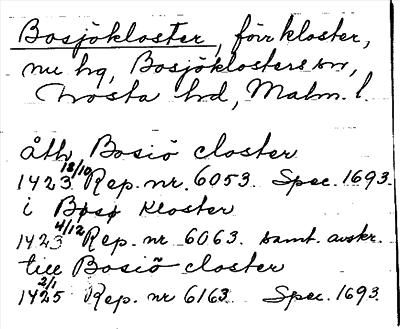 Bosjökloster, förr kloster,
nu hg, Bosjöklosters sn,
Frosta hd, Malm. l.
åth Bosiö closter
1423 18/10 Rep. nr. 6053. Spec. 1693.
i Bosø Kloster
1423 4/12 Rep. nr 6063. samt. avskr.
till Bosiö closter
1425 2/1 Rep. nr 6163. Spec. 1693.